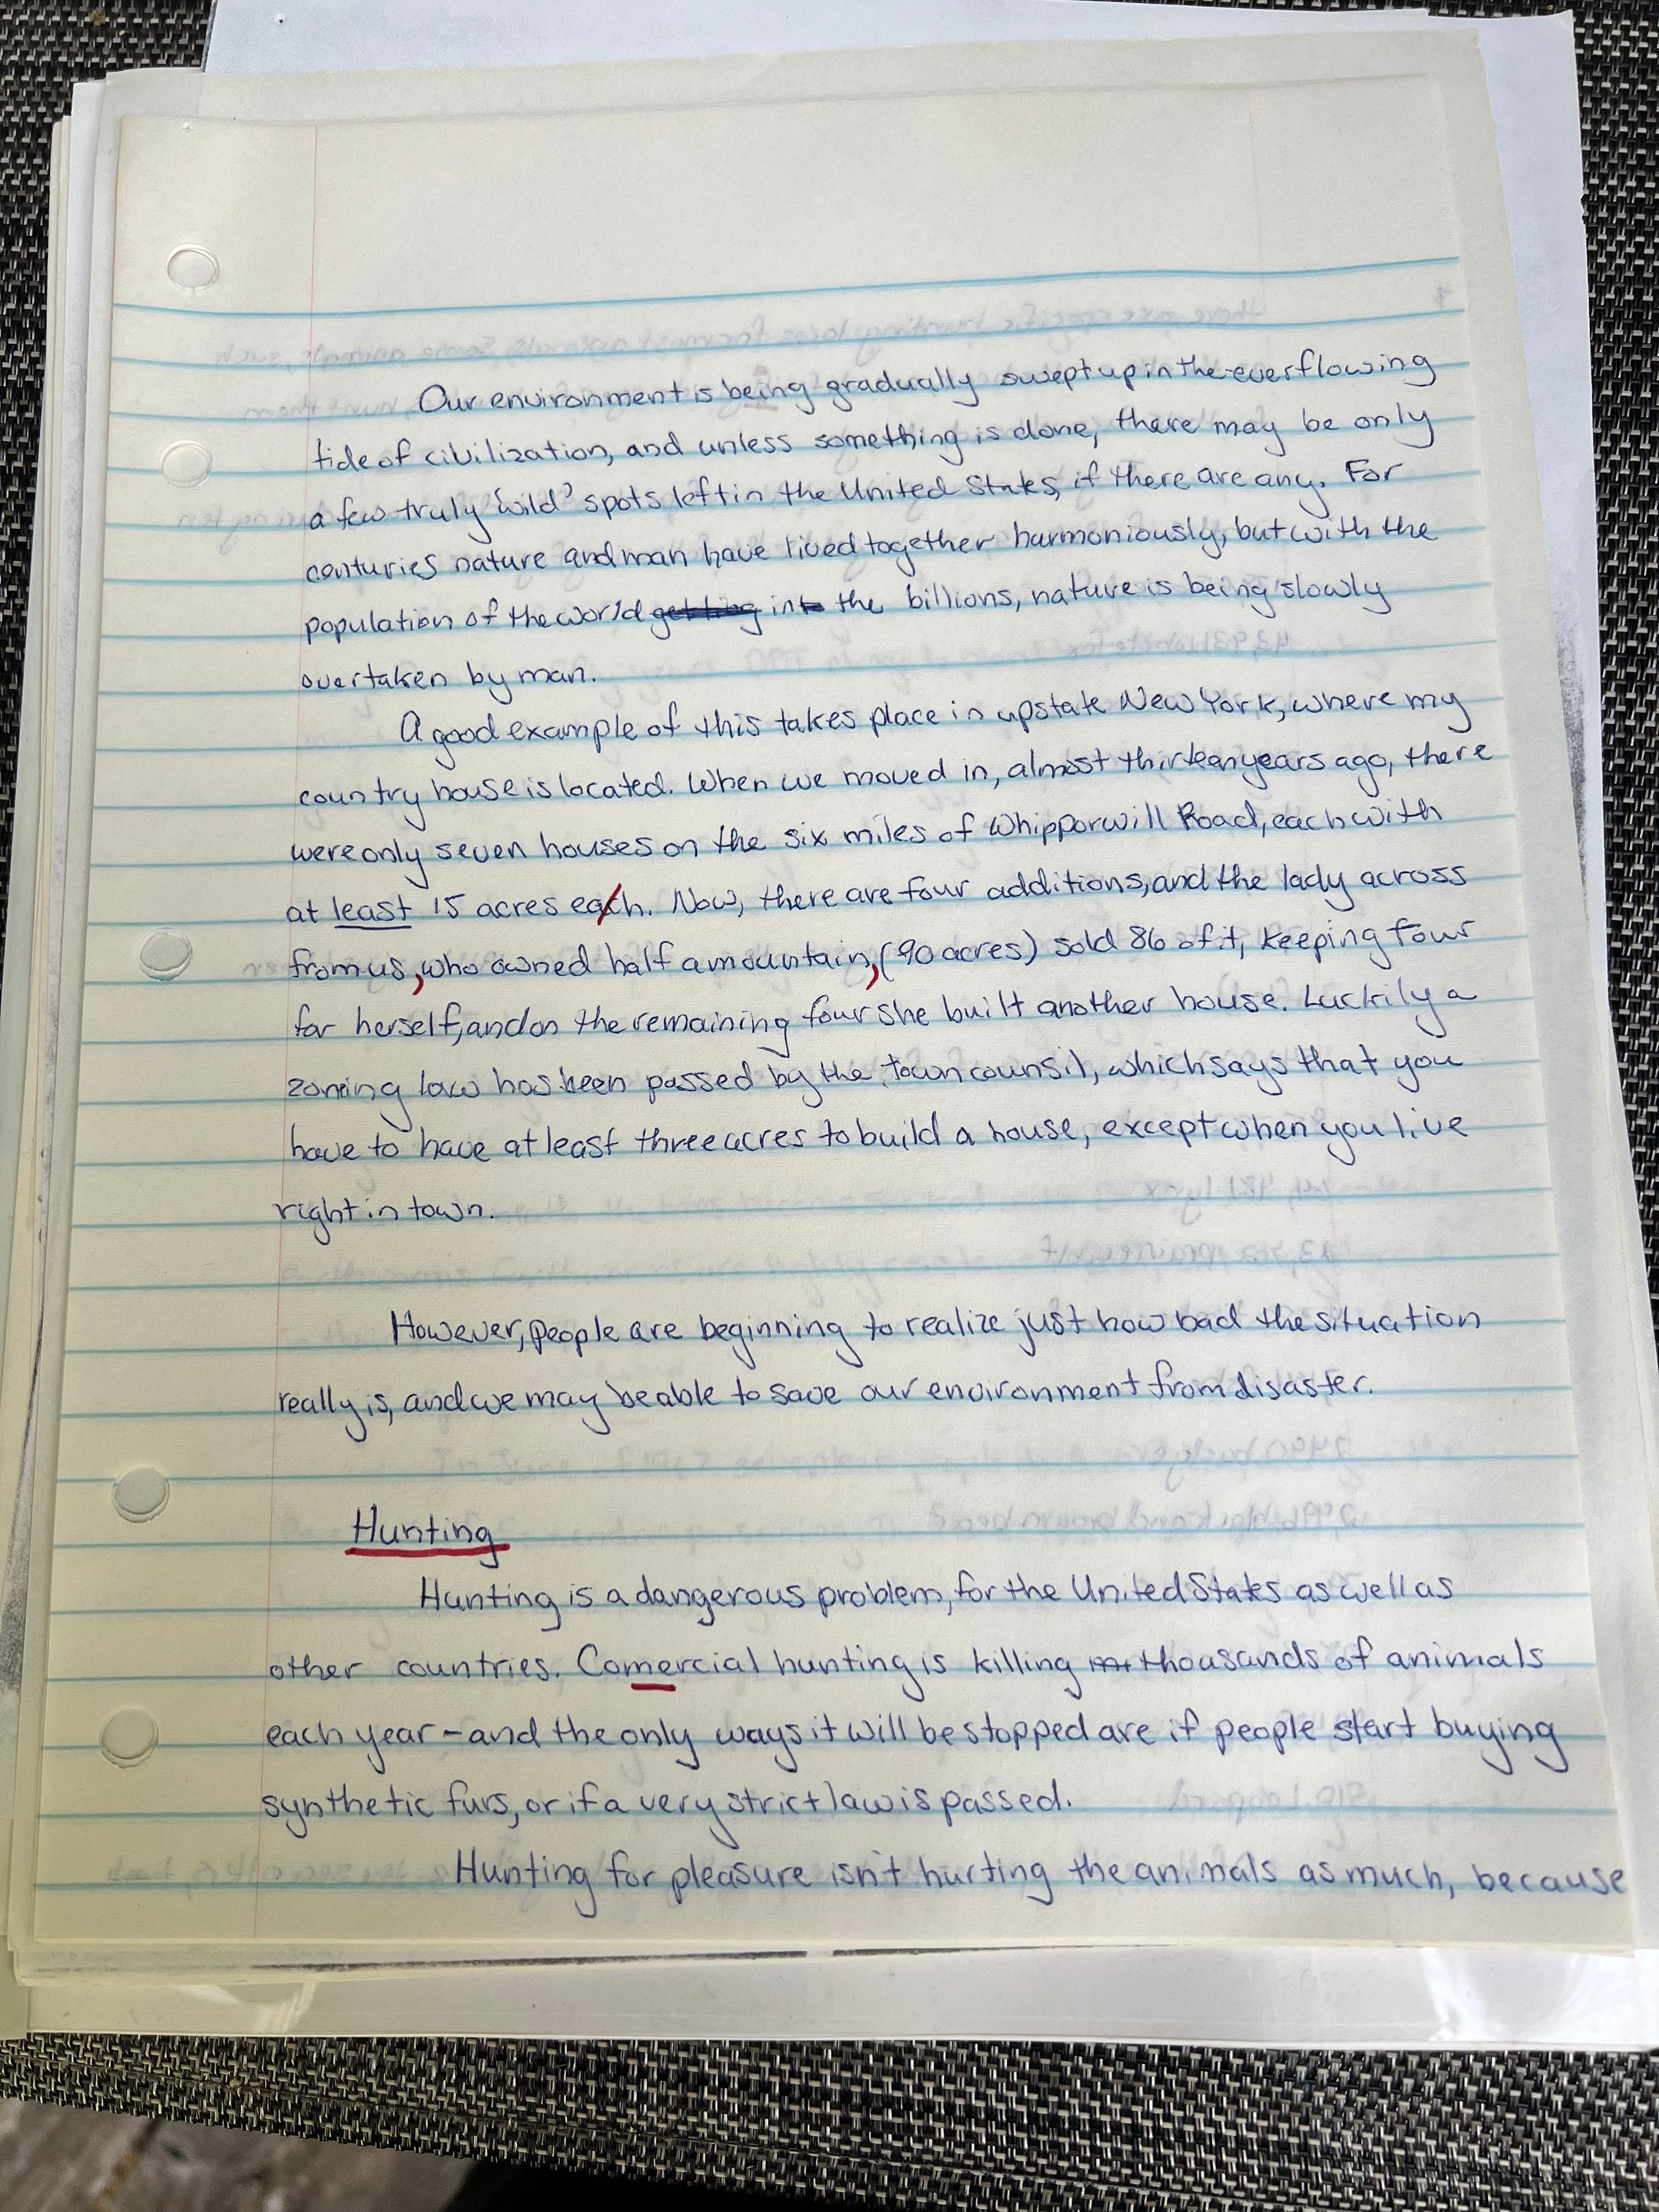 Our environment is being gradually swept up in the everflowing
tide of civilization, and unless something is done, there may be only
a few truly 'wild' spots left in the United States, if there are any. For
centuries nature and man have lived together harmoniously, but with the
population of the world getting into the billions, nature is being slowly
overtaken by man.
A good example of this takes place in upstate New York, where my
country house is located. When we moved in, almost thirteen years ago, there
were only seven houses on the six miles of Whipporwill Road, each with
at least 15 acres each. Now, there are four additions, and the lady across
from us, who owned half a mountain, (90 acres) sold 86 of it, keeping four
for herself, and on the remaining four she built another house. Luckily a
zoning law has been passed by the town counsil, which says that you
have to have at least three acres to build a house, except when you live
right in town.
However, people are beginning to realize just how bad the situation
really is, and we may be able to save our environment from disaster.
Hunting
Hunting is a dangerous problem, for the United States as well as
other countries. Comercial hunting is killing thousands of animals
each year - and the only ways it will be stopped are if people start buying
synthetic furs, or if a very strict law is passed.
Hunting for pleasure isn't hurting the animals as much, because